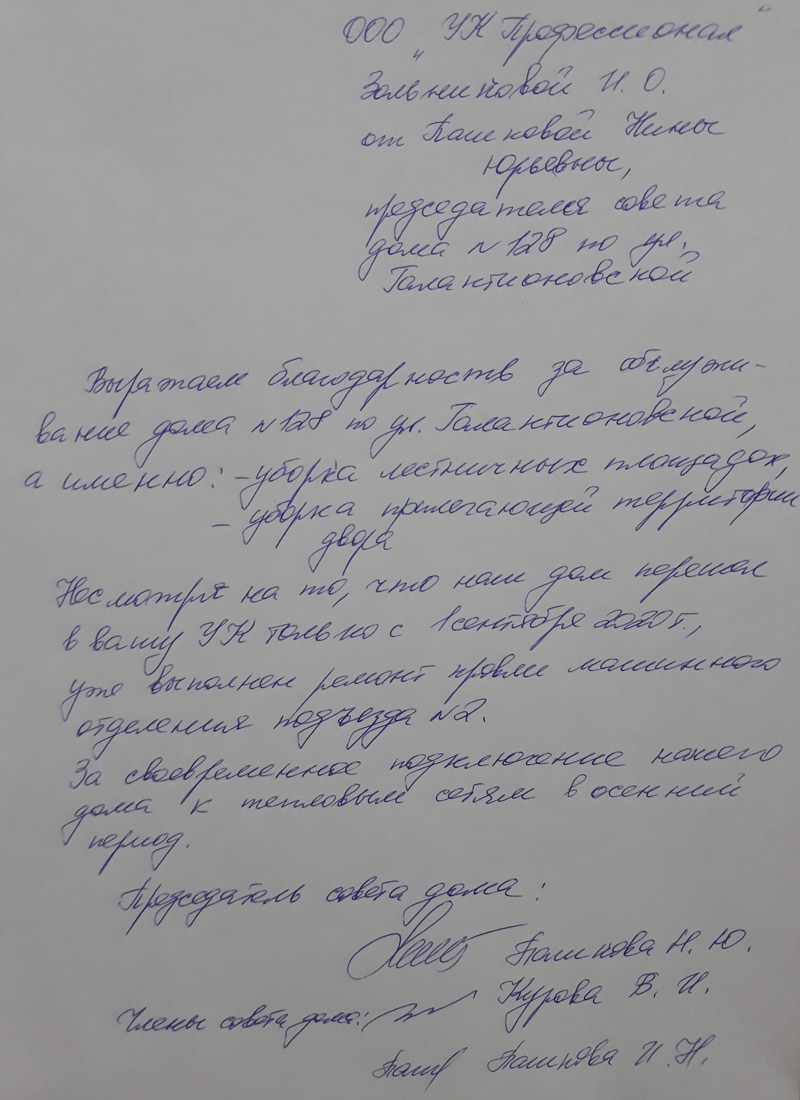 ООО "УК Профессионал"
Зольниковой И. О.
от Пашковой Нины
Юрьевны,
председателя совета
дома №128 по ул.
Галактионовской
Выражаем благодарность за обслужи-
вание дома №128 по ул. Галактионовской,
а именно: - уборка лестничных площадок,
- уборка прилегающей территории
двора
Несмотря на то, что наш дом перешел
в вашу УК только с 1 сентября 2020 г.,
уже выполнен ремонт кровли машинного
отделения подъезда №2.
За своевременное подключение нашего
дома к тепловым сетям в осенний
период.
Председатель совета дома:
Пашкова Н. Ю.
Члены совета дома: Курова В. И.
Пашкова И. Н.